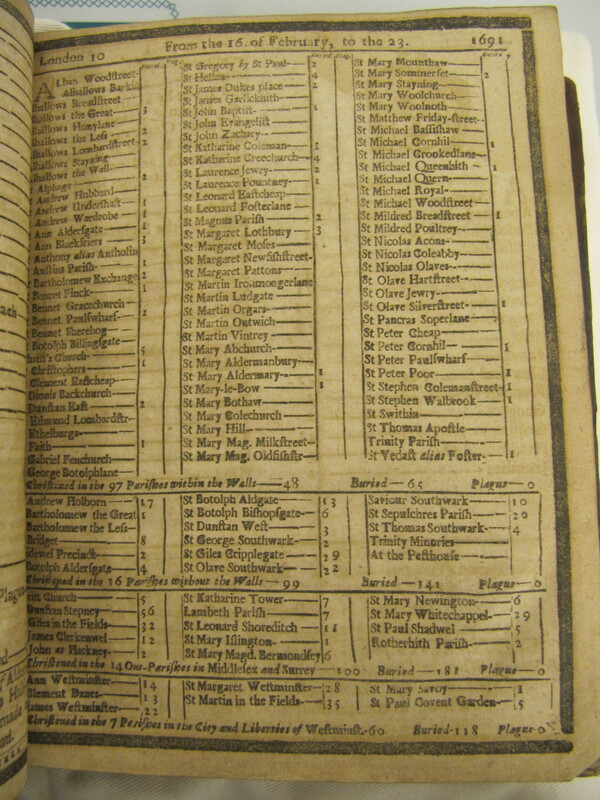 London 10 From the 16. of February, to the 23. 1691
Buried Plag. Buried Plag. Buried
Alban Woodstreet
Alhallows Barkin
hallows Breadstreet
hallows the Great 3
hallows Honylane
hallows the Less 2
hallows Lombardstreet 2
hallows Staying
hallows the Wall
Alphage 2
Andrew Hubbard
Andrew Undershaft 1
Andrew Wardrobe 1
Ann Aldersgate 1
Ann Blackfriers 3
Anthony alias Antholin
Austins Parish 1
Bartholomew Exchange 2
Bennet Finck 1
Bennet Gracechurch
Bennet Paulswharf 2
Bennet Sherehog
Botolph Billingsgate
hrist's Church 5
Christophers 1
Clement Eastcheap
Dionis Backchurch
Dunstan East 2
Edmund Lombardstr
Ethelburga
Faith 1
Gabriel Fenchurch
George Botolphlane
St Gregory by St Paul 2
St Hellen 4
St James Dukes place 2
St James Garlickhith
St John Baptist 1
St John Evangelist
St John Zachary
St Katharine Coleman 1
St Katharine Creechurch 4
St Laurence Jewry 2
St Laurence Pountney 1
St Leonard Eastcheap
St Leonard Fosterlane
St Magnus Parish 2
St Margaret Lothbury 3
St Margaret Moses
St Margaret Newfishstreet
St Margaret Pattons
St Martin Ironmongerlane
St Martin Ludgate
St Martin Orgars
St Martin Outwich
St Martin Vintrey
St Mary Abchurch
St Mary Aldermanbury
St Mary Aldermary 1
St Mary-le-Bow 1
St Mary Bothaw
St Mary Colechurch
St Mary Hill
St Mary Mag. Milkstreet
St Mary Mag. Oldfishstr
St Mary Mounthaw
St Mary Sommerset 2
St Mary Stayning
St Mary Woolchurch
St Mary Woolnoth
St Matthew Friday-street
St Michael Bassishaw
St Michael Cornhil 1
St Michael Crookedlane
St Michael Queenhith 1
St Michael Quern
St Michael Royal
St Michael Woodstreet
St Mildred Breadstreet 1
St Mildred Poultrey
St Nicolas Acons
St Nicolas Coleabby
St Nicolas Olaves
St Olave Hartstreet
St Olave Jewry
St Olave Silverstreet 1
St Pancras Soperlane
St Peter Cheap
St Peter Cornhil 1
St Peter Paulswharf
St Peter Poor 1
St Stephen Colemanstreet 1
St Stephen Walbrook 1
St Swithin
St Thomas Apostle
Trinity Parish
St Vedast alias Foster 1
Christned in the 97 Parishes within the Walls 48 Buried 65 Plague 0
Andrew Holborn 17
Bartholomew the Great 1
Bartholomew the Less
Bridget 8
idewel Precinct 2
Botolph Aldersgate 4
St Botolph Aldgate 13
St Botolph Bishopsgate 6
St Dunstan West 3
St George Southwark 2
St Giles Cripplegate 29
St Olave Southwark 22
Saviour Southwark 10
St Sepulchres Parish 20
St Thomas Southwark 4
Trinity Minories
At the Pesthouse
Christned in the 16 Parishes without the Walls 99 Buried 141 Plague 0
rist Church 5
Dunstan Stepney 56
Giles in the Fields 32
James Clerkenwel 12
John at Hackney 2
St Katharine Tower 7
Lambeth Parish 7
St Leonard Shoreditch 11
St Mary Islington 1
St Mary Magd. Bermondsey 6
St Mary Newington 6
St Mary Whitechappel 29
St Paul Shadwel 5
Rotherhith Parish 2
Christened in the 14 Out-Parishes in Middlesex and Surrey 100 Buried 181 Plague 0
Ann Westminster 14
Clement Danes 13
James Westminster 22
St Margaret Westminster 28
St Martin in the Fields 35
St Mary Savoy 1
St Paul Covent Garden 5
Christened in the 7 Parishes in the City and Liberties of Westminst. 60 Buried 118 Plague 0